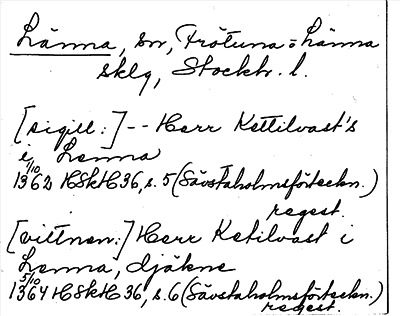 Länna, sn, Frötuna o Länna
sklg, Stockh. l.
[sigill:] -- Herr Kettilvast's
i Lenna
1/10 1362 HSkH 36, s. 5 (Sävstaholmsförteckn.)
regest.
[vittnen:] Herr Ketilvast i
Lenna, djäkne
5/10 1364 HSkH 36, s. 6 (Sävstaholmsförteckn.)
regest.